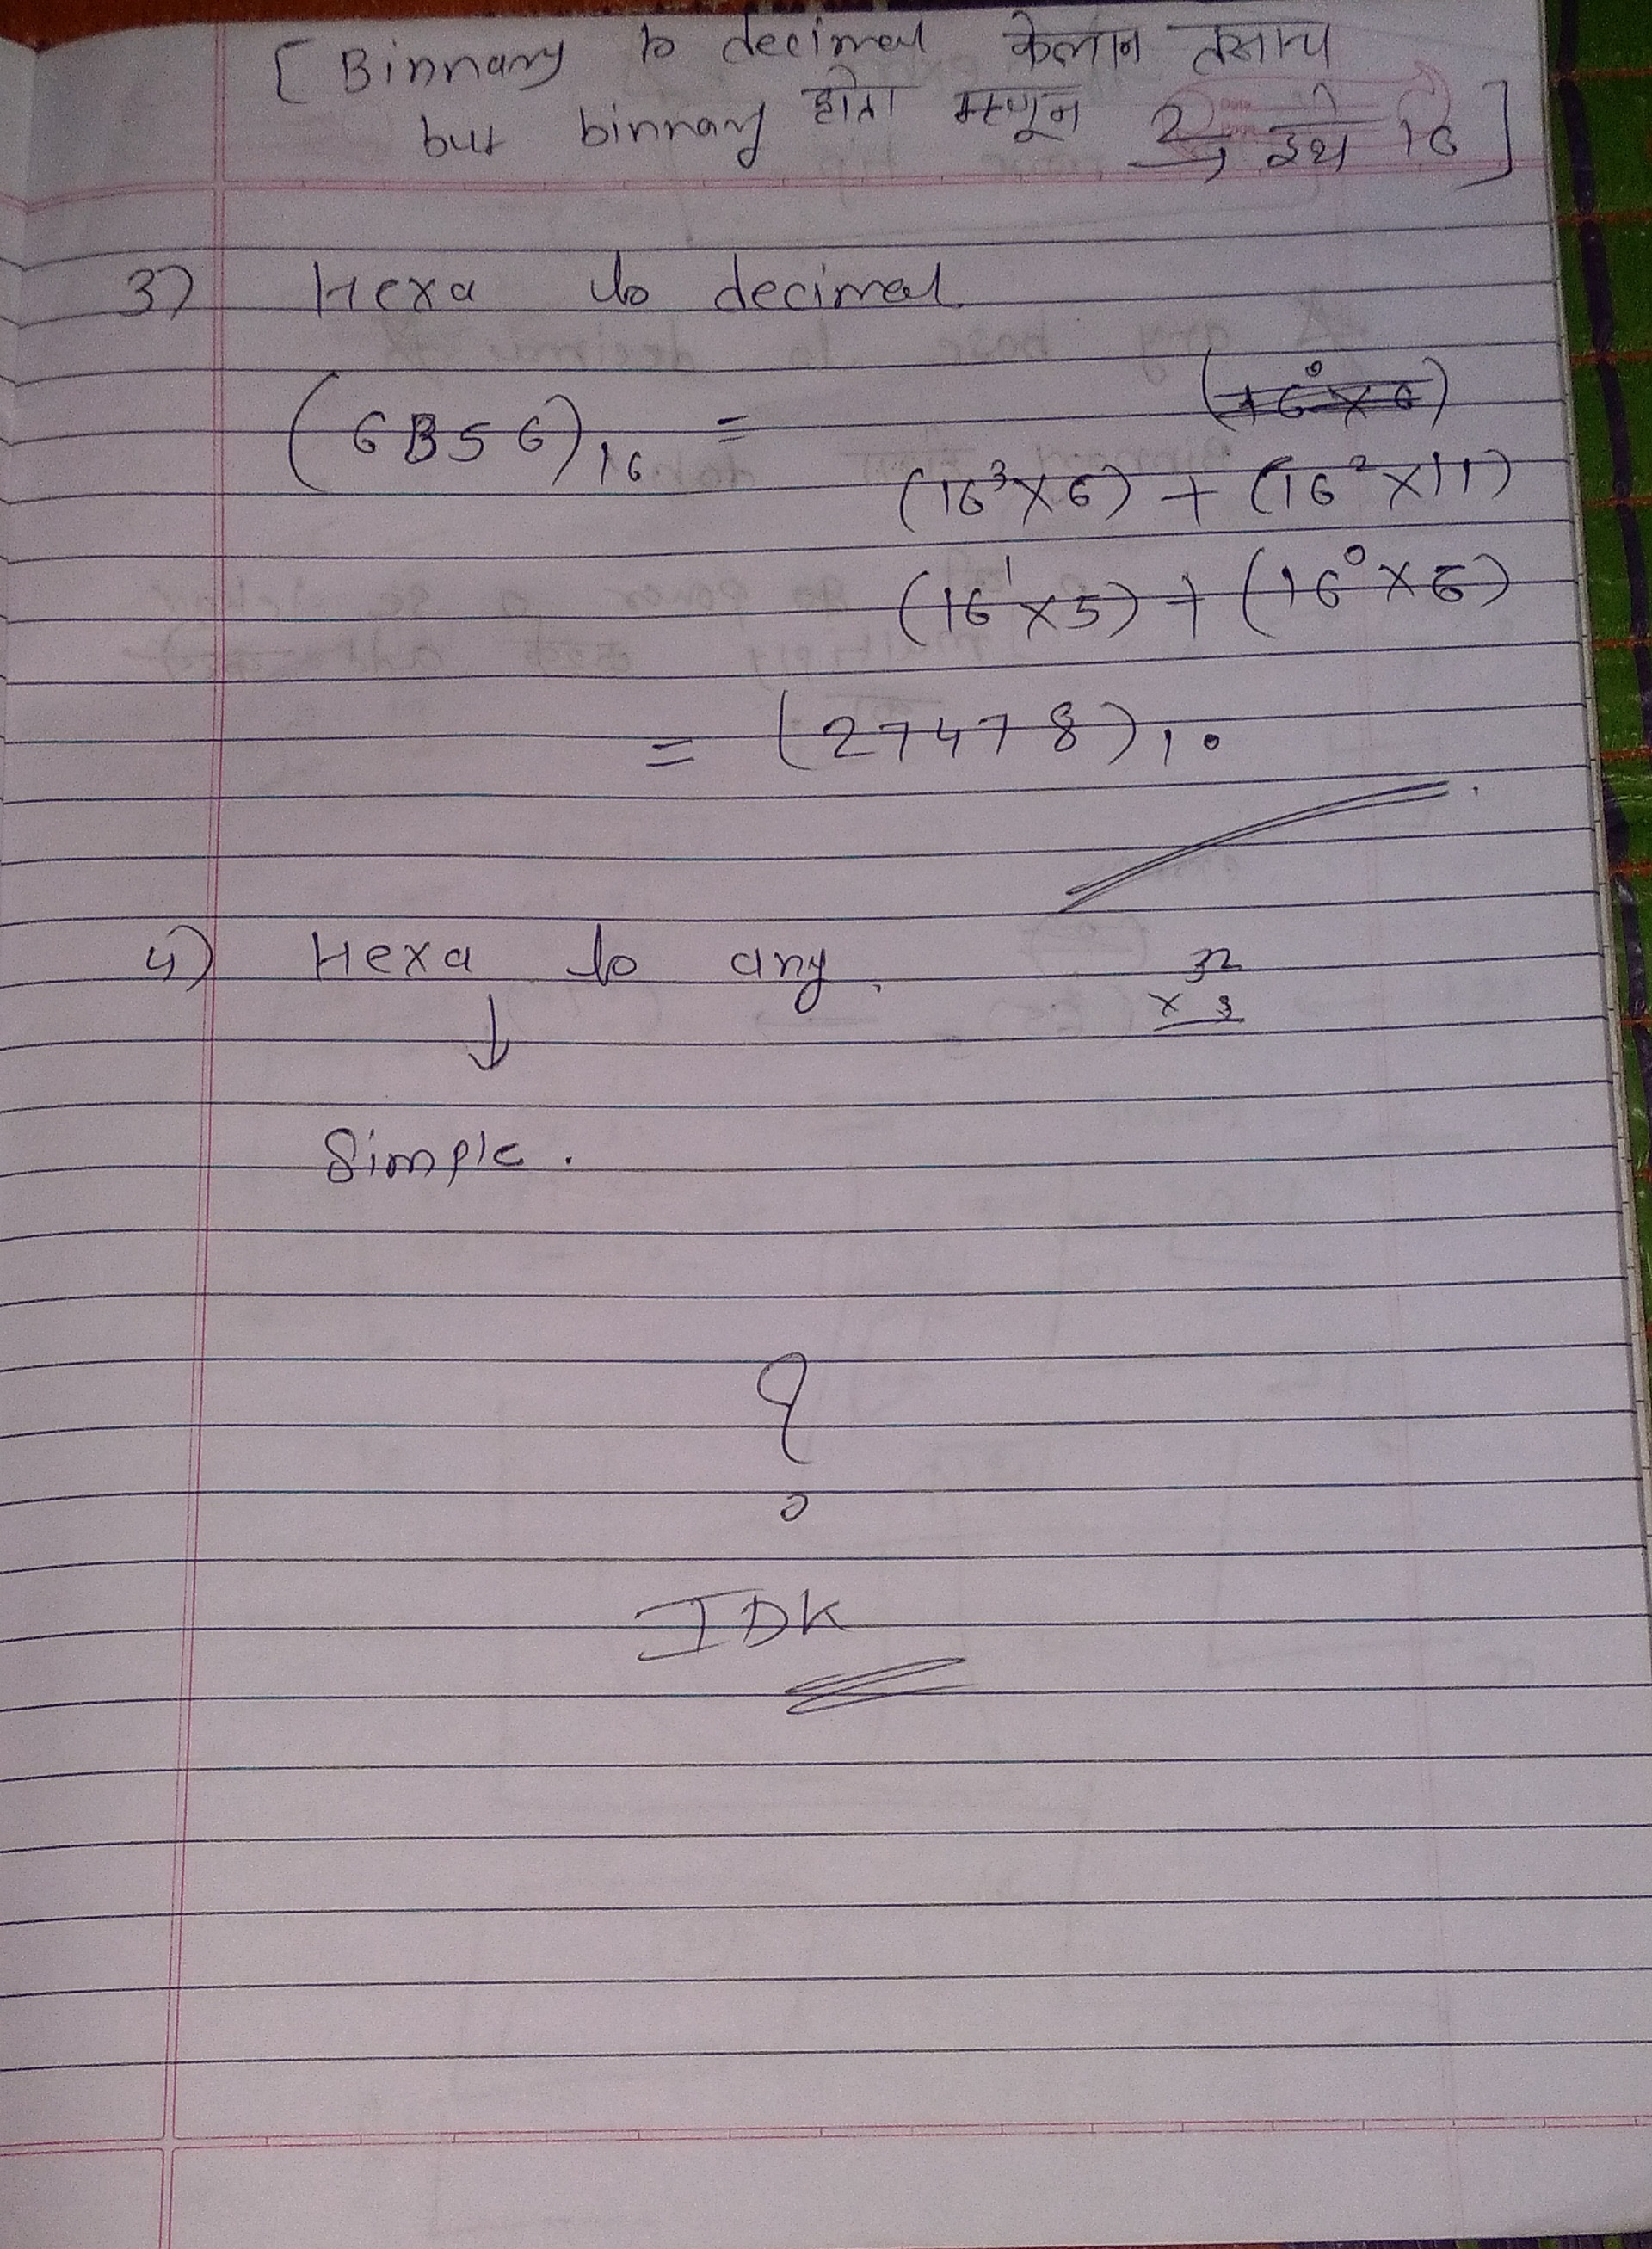 [ Binnary to decimal केलान तसाच
but binnary होता म्हणून 2, इथ 16 ]
3) Hexa to decimal.
(6B56)16 =
(16³×6) + (16²×11)
(16¹×5) + (16⁰×6)
= (27478)10
4) Hexa to any.
32
× 3
↓
Simple.
?
IDK